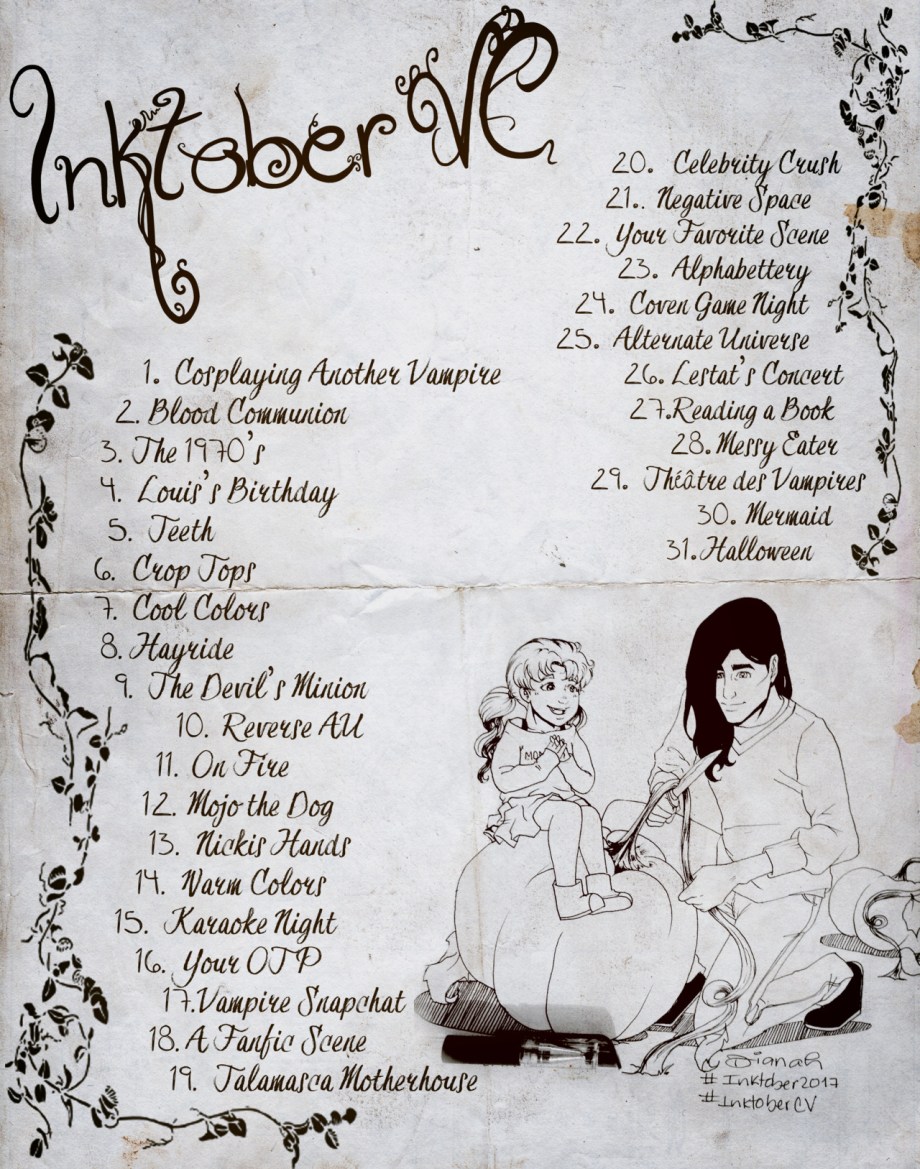 Inktober VC
1. Cosplaying Another Vampire
2. Blood Communion
3. The 1970's
4. Louis's Birthday
5. Teeth
6. Crop Tops
7. Cool Colors
8. Hayride
9. The Devil's Minion
10. Reverse AU
11. On Fire
12. Mojo the Dog
13. Nickis Hands
14. Warm Colors
15. Karaoke Night
16. Your OTP
17. Vampire Snapchat
18. A Fanfic Scene
19. Talamasca Motherhouse
20. Celebrity Crush
21.. Negative Space
22. Your Favorite Scene
23. Alphabettery
24. Coven Game Night
25. Alternate Universe
26. Lestat's Concert
27.Reading a Book
28. Messy Eater
29. Théâtre des Vampires
30. Mermaid
31. Halloween
#Inktober2017
#InktoberCV